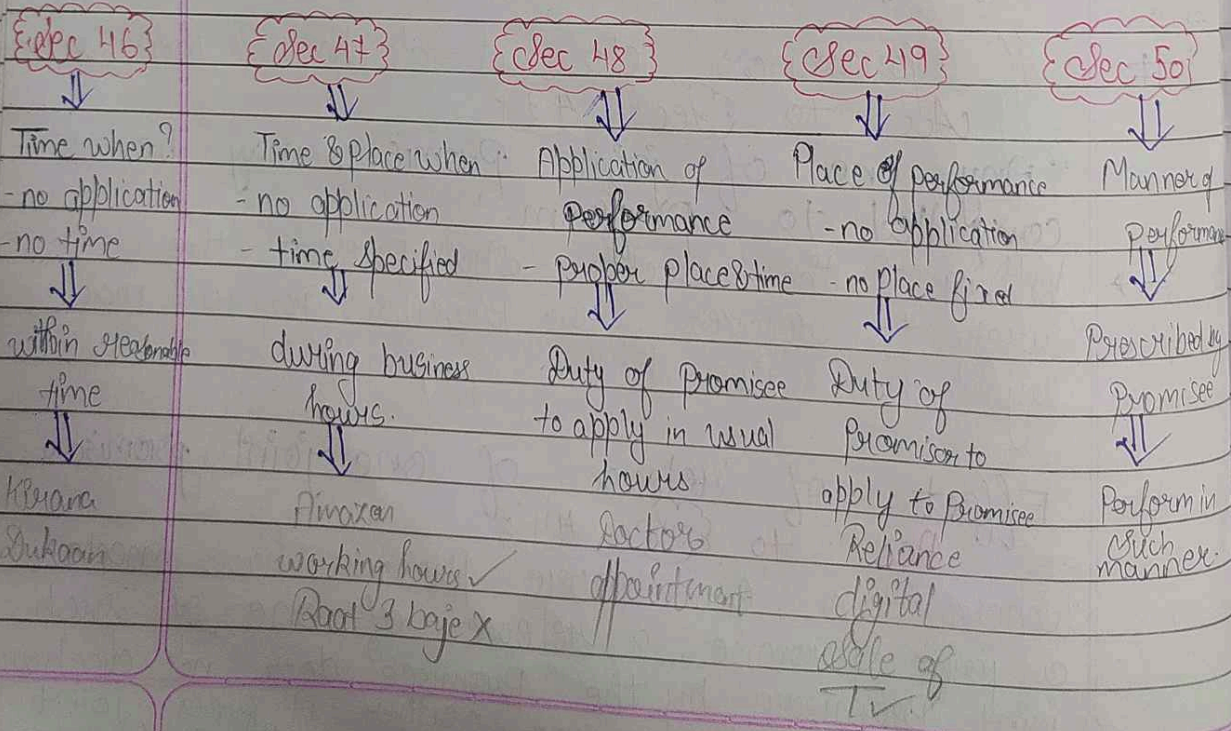 Sec 46
Time when?
- no application
- no time
within reasonable
time
Kirana
Dukaan
Sec 47
Time & Place when
- no application
- time specified
during business
hours.
Amazon
working hours ✓
Raat 3 baje x
Sec 48
Application of
performance
- proper place & time
Duty of Promisee
to apply in usual
hours
Doctor
appointment
Sec 49
Place of performance
- no application
- no place fixed
Duty of
Promisor to
apply to Promisee
Reliance
digital
sale of
TV.
Sec 50
Manner of
performan
Prescribed by
Promisee
Perform in
such
manner.